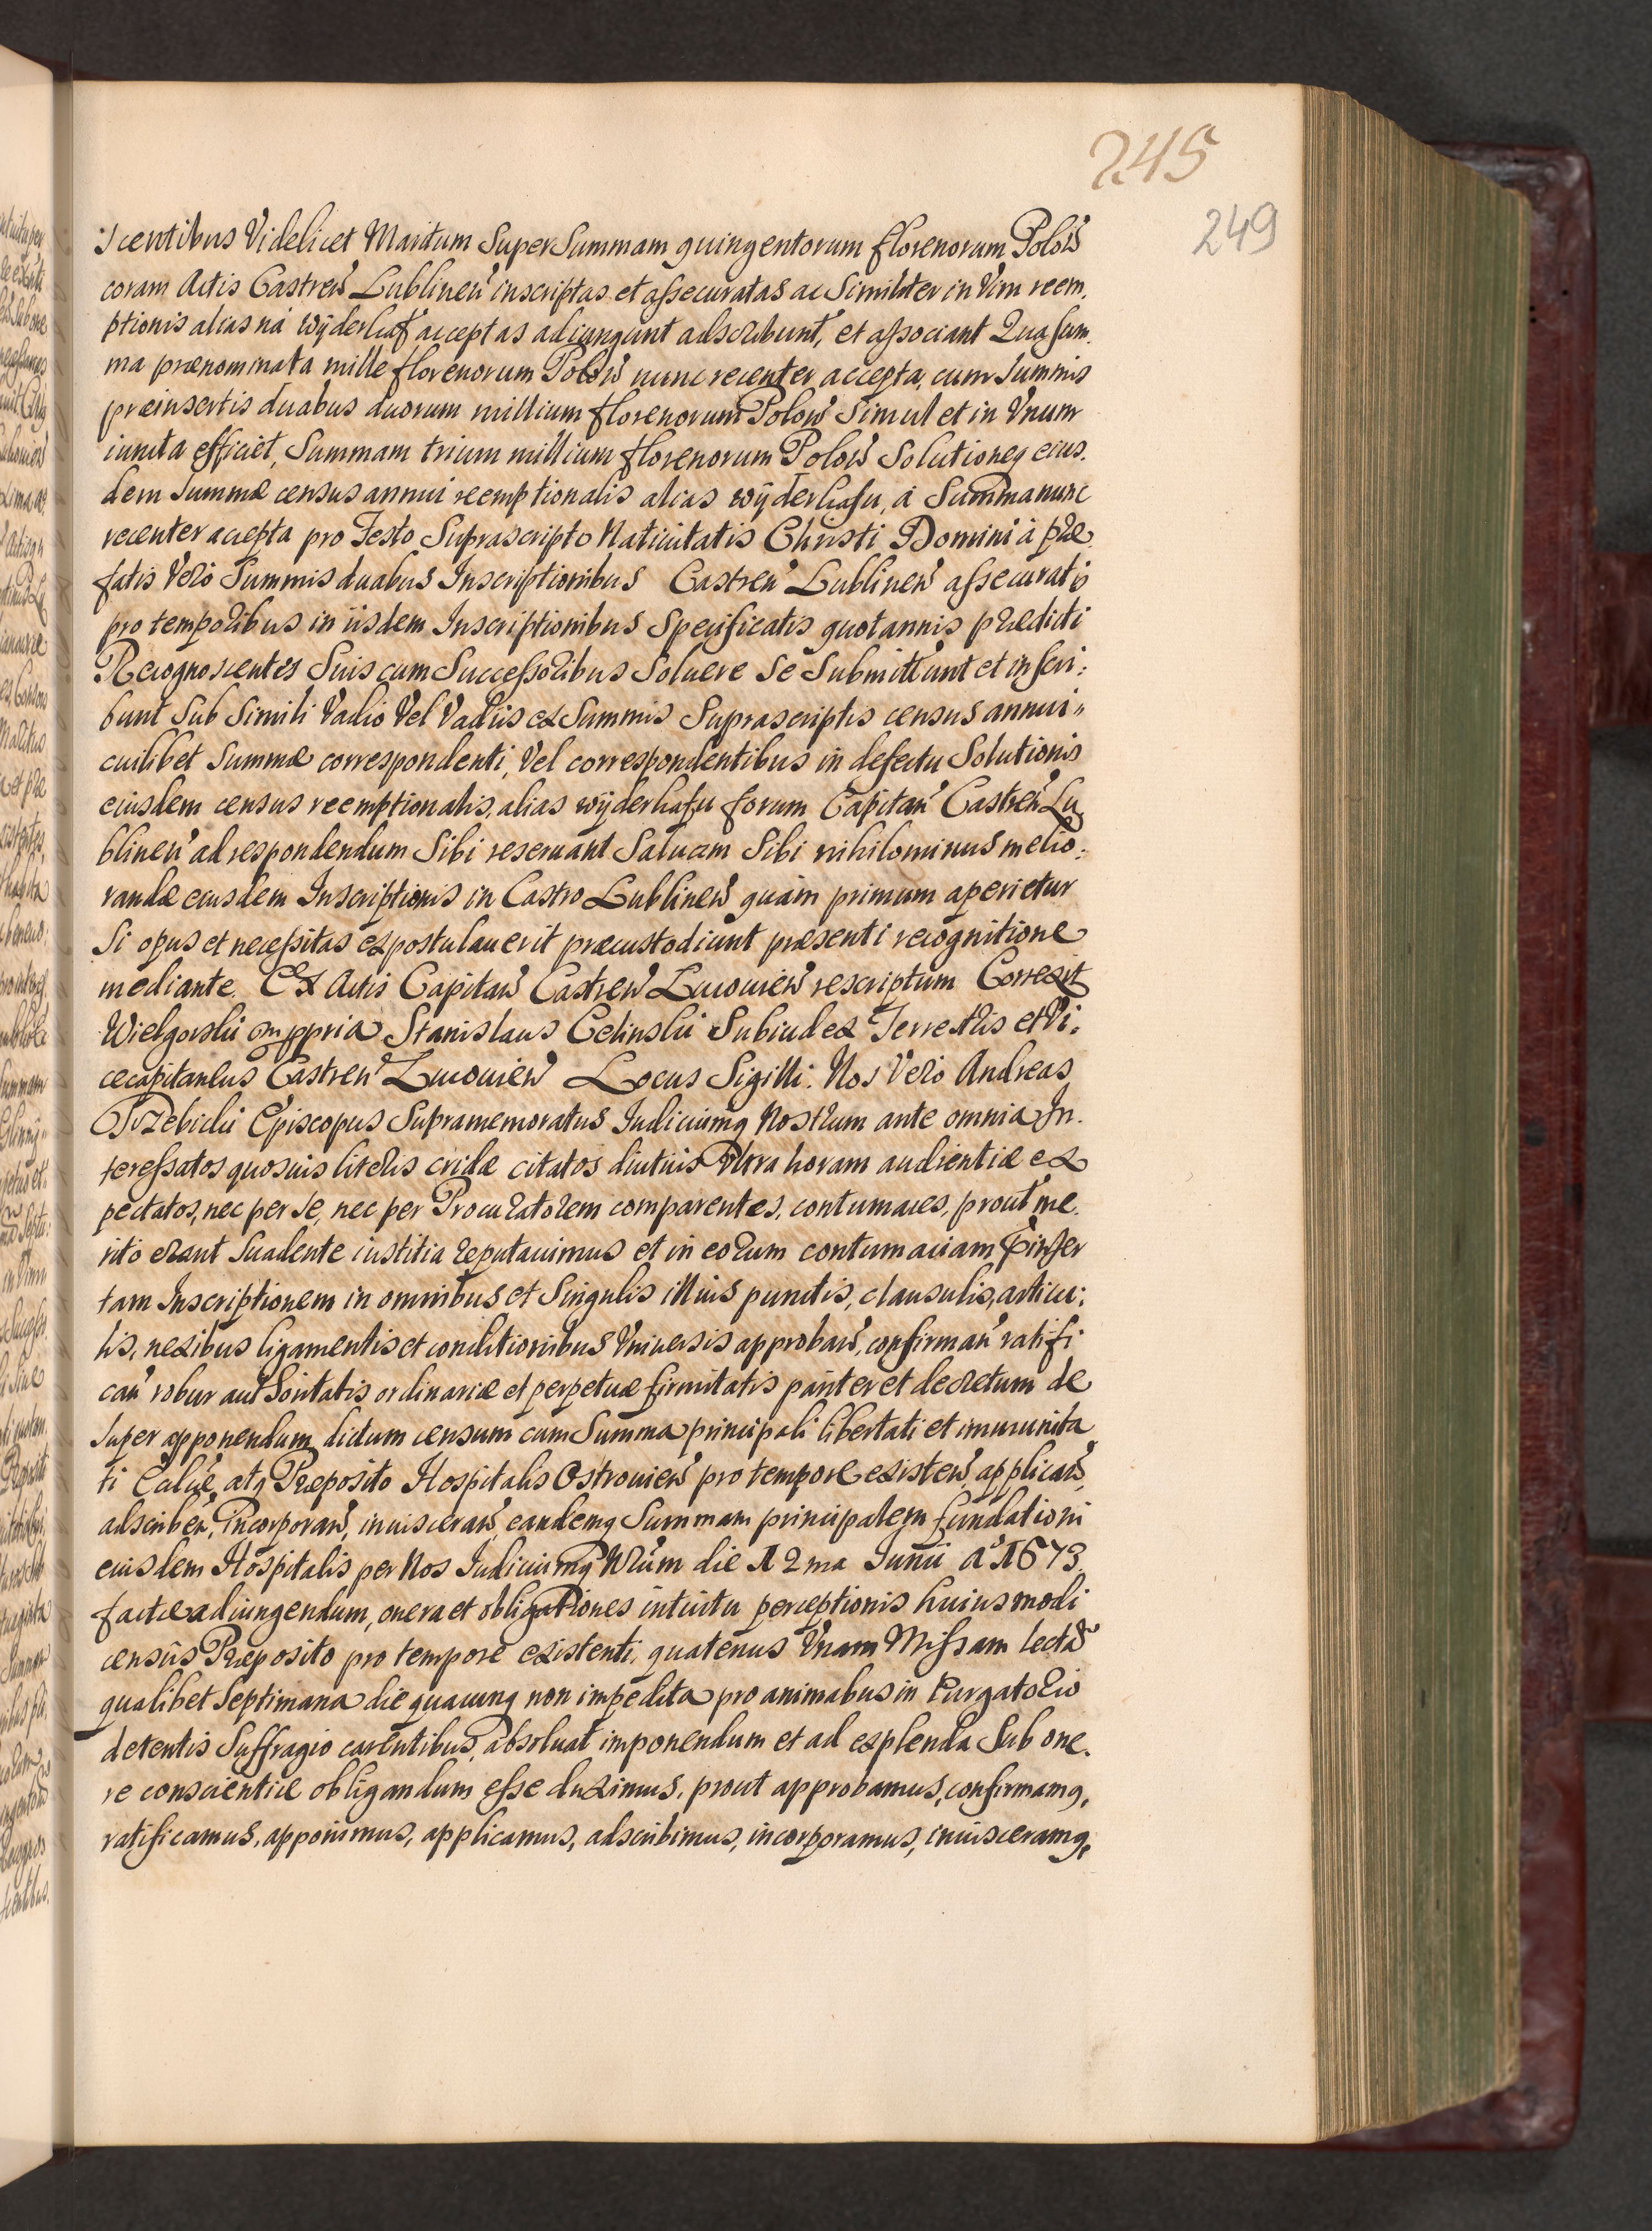 245
249
scentibus Videlicet Maritum Super Summam quingentorum florenorum Polon̄
coram Actis Castren̄ Lublinen̄ inscriptas et assecuratas ac Similiter in Vim reem,
ptionis alias ná wÿderkaf acceptas adiungunt adscribunt, et associant Qua sum.
ma prænominata mille florenorum Polon̄ nunc recenter accepta, cum Summis
præinsertis duabus duorum millium florenorum Polon̄ Simul et in Vnum
iuncta efficiet, Summam trium millium florenorum Polon̄ Solutioneq eius.
dem Summæ census annui reemptionalis alias wÿderkafu, á Summa nunc
recenter accepta pro Festo Suprascripto Natiuitatis Christi Domini á præ
fatis Veró Summis duabus Inscriptionibus Castren̄ Lublinen̄ assecuratis
pro temporibus in iisdem Inscriptionibus Specificatis quotannis prædicti
Recognoscentes Suis cum Successoribus Soluere Se Submittunt et inscri:
bunt Sub Simili Vadio Vel Vadiis ex Summis Suprascriptis census annui"
cuilibet Summæ correspondenti, Vel correspondentibus in defectu Solutionis
eiusdem census reemptionalis, alias wÿderkafu forum Capitan̄ Castren̄ Lu
blinen̄ ad respondendum Sibi reseruant Saluam Sibi nihilominus melio:
randæ eiusdem Inscriptionis in Castro Lublinen̄ quám primum aperietur
Si opus et necessitas expostulauerit præcustodiunt præsenti recognitione
mediante. Ex Actis Capitan̄ Castren̄ Luouien̄ rescriptum Correxit
Wielgorski mppria Stanislaus Celinski Subiudex Terrestris et Vi.
cecapitaneus Castren̄ Luouien̄ Locus Sigilli. Nos Veró Andreas
Trzebicki Episcopus Supramemoratus Iudiciumq Nostrum ante omnia In.
teressatos quosuis literis cridæ citatos diutius Vltra horam audientiæ ex
pectatos, nec per Se, nec per Procuratorem comparentes, contumaces, prout me.
rito erant Suadente iustitia reputauimus et in eorum contumaciam p̄inser
tam Inscriptionem in omnibus et Singulis illius punctis, clausulis, articu:
lis, nexibus ligamentis et conditionibus Vniuersis approban̄, confirman̄ ratifi
can̄ robur authoritatis ordinariæ et perpetuæ firmitatis pariter et decretum de
Super apponendum, dictum censum cum Summa principali libertati et immunita
ti Ealiæ, atq Præposito Hospitalis Ostrouien̄ pro tempore existen̄, applican̄,
adscriben̄, Incorporan̄, inuisceran̄, eandemq Summam principalem fundationi
eiusdem Hospitalis per Nos Iudiciumq Nrum die 12 ma Iunii A° 1673.
factæ adiungendum, onera et obligationes intuitu perceptionis huiusmodi
censûs Præposito pro tempore existenti, quatenus Vnam Missam lectā
qualibet Septimana die quacunq non impedita pro animabus in Purgatorio
detentis Suffragio carentibus, absoluat imponendum et ad explenda Sub one.
re conscientiæ obligandum esse duximus, prout approbamus, confirmamq,
ratificamus, apponimus, applicamus, adscribimus, incorporamus, inuisceramq,